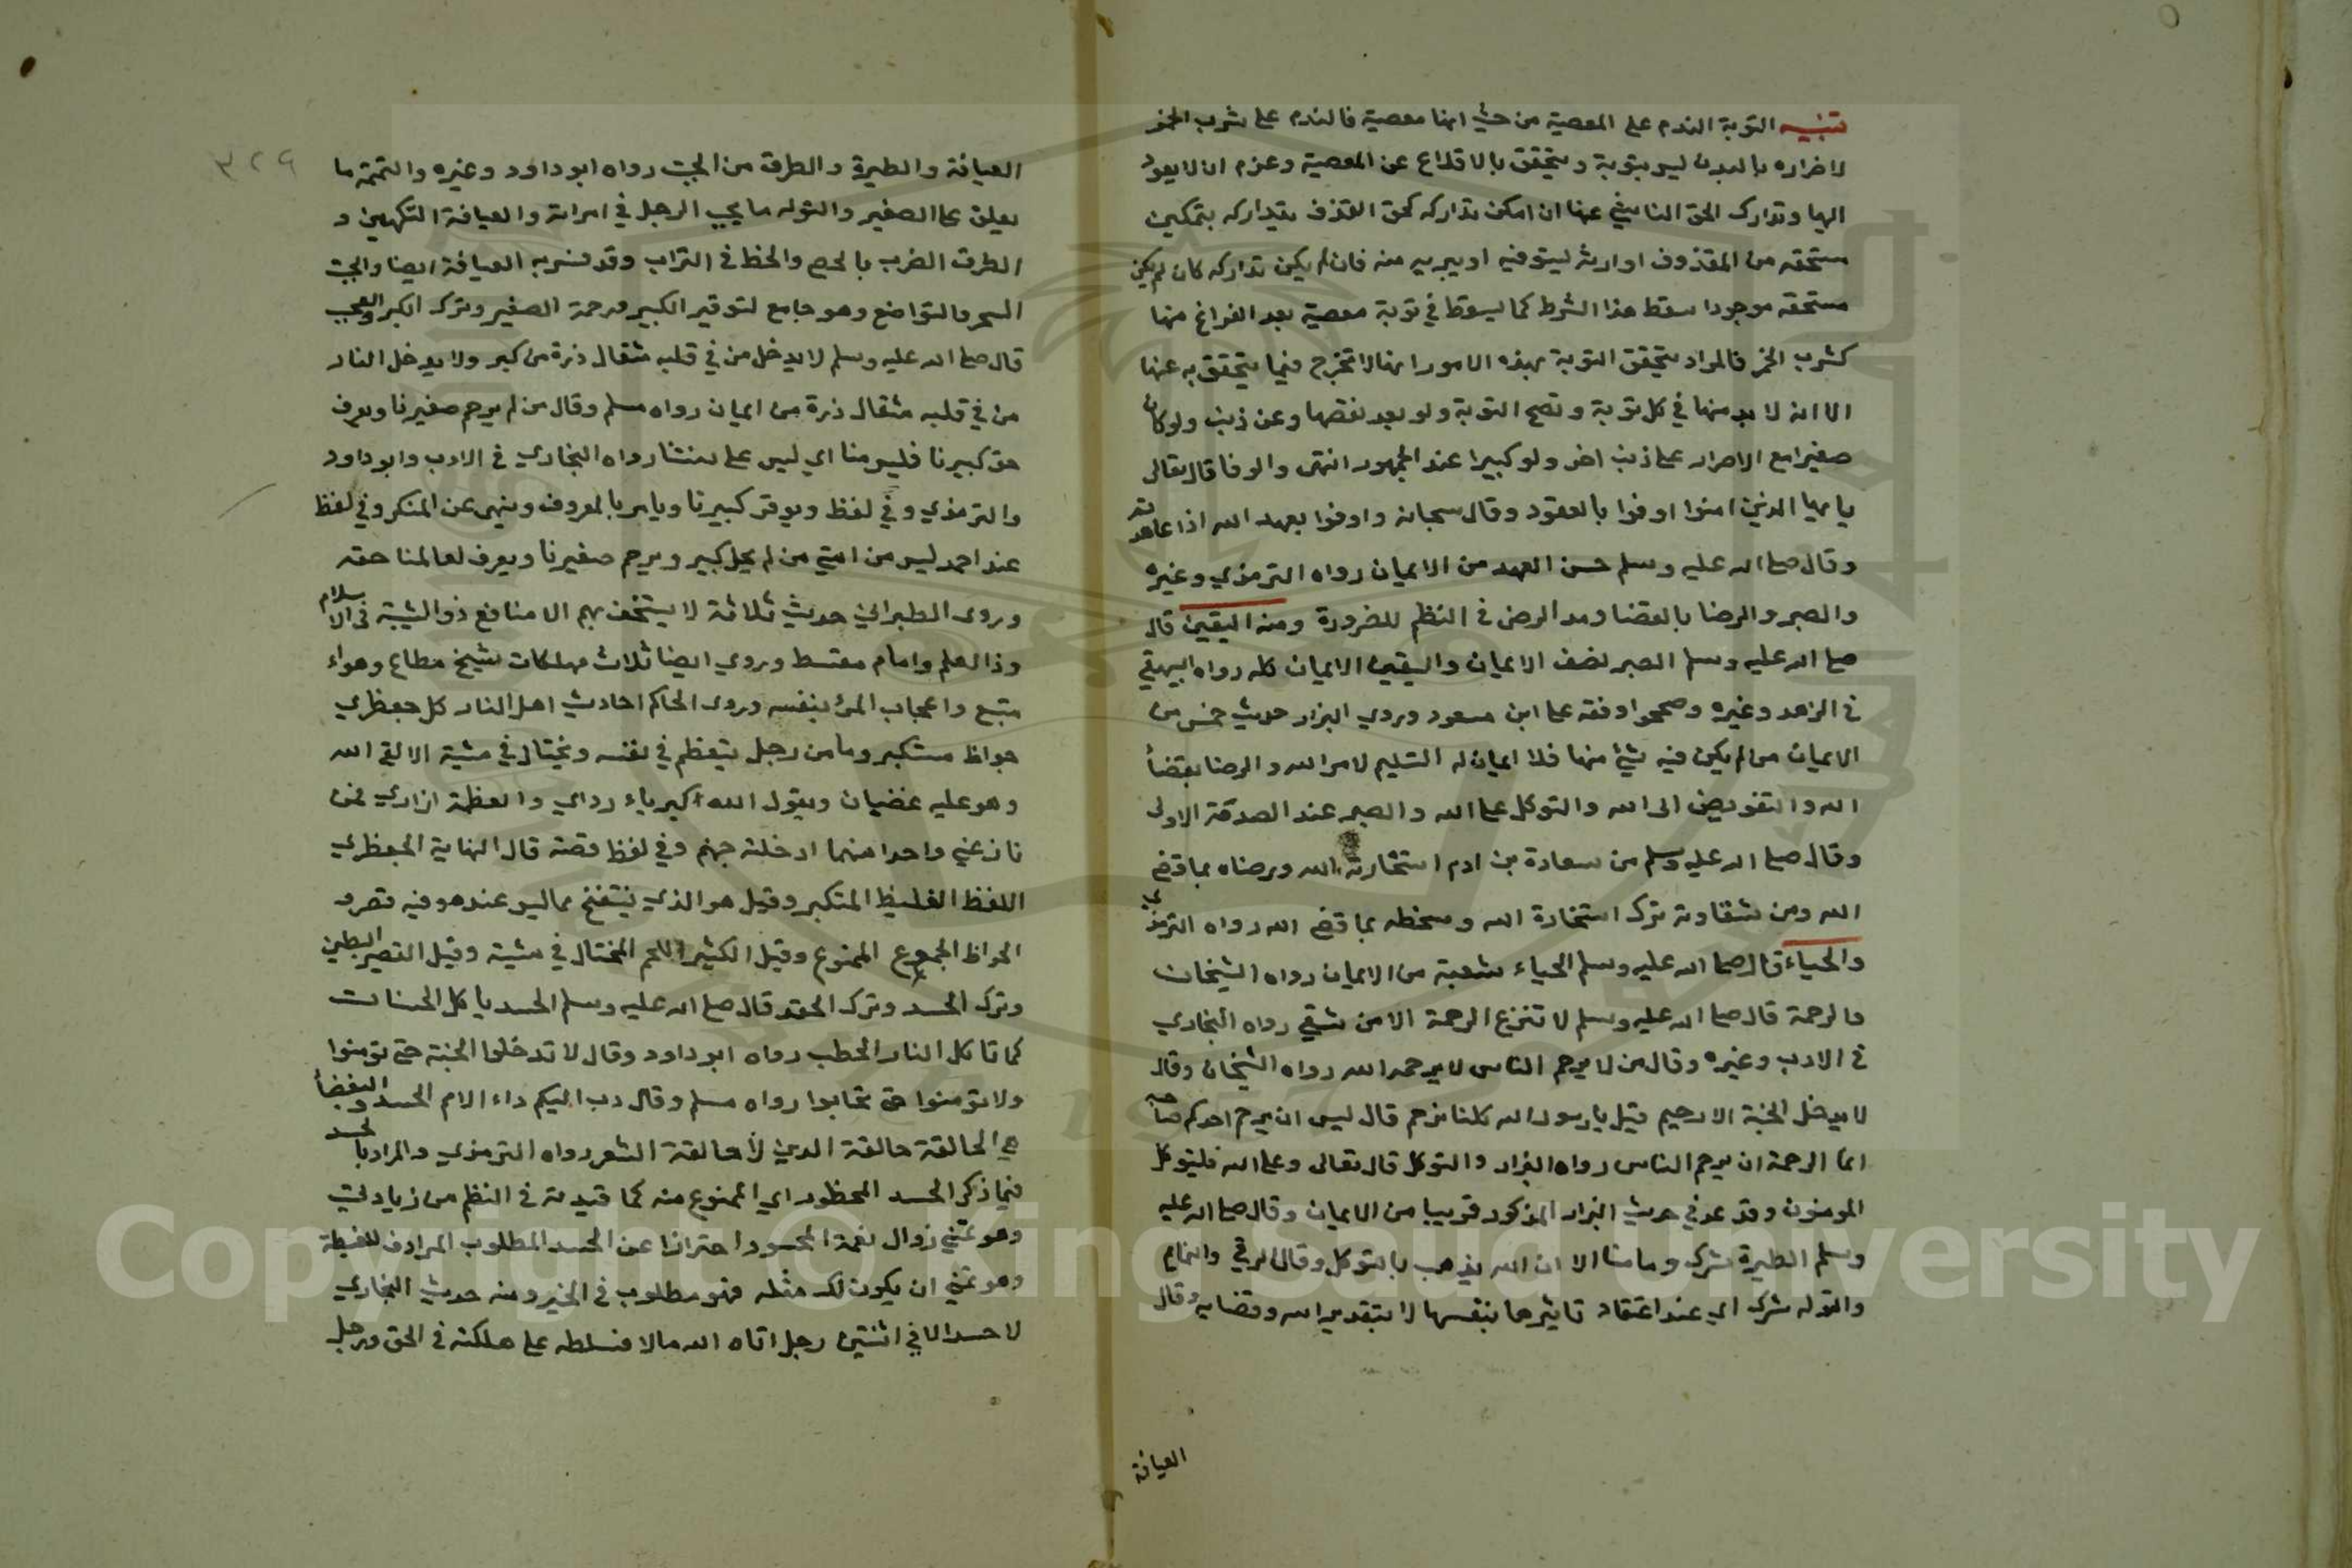 تنبيه التوبة الندم على المعصية من حيث انها معصية فالندم على شرب الخمر
لاضراره بالبدن ليس بتوبة ويتحقق بالاقلاع عن المعصية وعزم ان لا يعود
اليها وتدارك الحق الناشي عنها ان امكن تداركه كحق القذف بتداركه بتمكين
مستحقه من المقذوف او وارثه ليستوفيه او يبريه منه فان لم يكن تداركه كان لم يكن
مستحقه موجودا سقط هذا الشرط كما يسقط في توبة معصية بعد الفراغ منها
كشرب الخمر فالمراد بتحقق التوبة بهذه الامور انها لا تخرج فيما يتحقق به عنها
الا انه لا بد منها في كل توبة وتصح التوبة ولو بعد نقضها وعن ذنب ولو كان
صغيرا مع الاصرار على ذنب اخر ولو كبيرا عند الجمهور انتهى والوفا قال تعالى
يا ايها الذين امنوا اوفوا بالعقود وقال سبحانه واوفوا بعهد الله اذا عاهدتم
وقال صلى الله عليه وسلم حسن العهد من الايمان رواه الترمذي وغيره
والصبر والرضا بالقضا ومد الرضى في النظم للضرورة ومنه اليقين قال
صلى الله عليه وسلم الصبر نصف الايمان واليقين الايمان كله رواه البيهقي
في الزهد وغيره وصححوا وقفه على ابن مسعود وروي البزار حديث خمس من
الايمان من لم يكن فيه شيء منها فلا ايمان له التسليم لامر الله والرضا بقضأ
الله والتفويض الى الله والتوكل على الله والصبر عند الصدمة الاولى
وقال صلى الله عليه وسلم من سعادة بن ادم استخارته الله ورضاه بما قضى
الله ومن شقاوته ترك استخارة الله وسخطه بما قضى الله رواه الترمذي
والحياء قال صلى الله عليه وسلم الحياء شعبة من الايمان رواه الشيخان
والرحمة قال صلى الله عليه وسلم لا تنزع الرحمة الا من شقي رواه البخاري
في الادب وغيره وقال من لا يرحم الناس لا يرحمه الله رواه الشيخان وقال
لا يدخل الجنة الا رحيم قيل يا رسول الله كلنا نرحم قال ليس ان يرحم احدكم صاحبه
انما الرحمة ان يرحم الناس رواه البزار والتوكل قال تعالى وعلى الله فليتوكل
المومنون وقد عد في حديث البزار المذكور قريبا من الايمان وقال صلى الله عليه
وسلم الطيرة شرك وما منا الا ان الله يذهب بالتوكل وقال الرقي والتمايم
والتوله شرك اي عند اعتقاد تاثيرها بنفسها لا بتقدير الله وقضايه وقال
العيافة
٣٢٩
العيافة والطيرة والطرق من الجبت رواه ابو داود وغيره والتمتمة ما
يعلق على الصغير والتوله ما يحبب الرجل في امراته والعيافة التكهين و
الطرق الضرب بالحصى والخط في التراب وقد فسر به العيافة ايضا والجبت
السحر والتواضع وهو جامع لتوقير الكبير ورحمة الصغير وترك الكبر والعجب
قال صلى الله عليه وسلم لا يدخل من في قلبه مثقال ذرة من كبر ولا يدخل النار
من في قلبه مثقال ذرة من ايمان رواه مسلم وقال من لم يرحم صغيرنا ويعرف
حق كبيرنا فليس منا اي ليس على سنتنا رواه البخاري في الادب وابو داود
والترمذي وفي لفظ ويوقر كبيرنا ويامر بالمعروف وينهى عن المنكر وفي لفظ
عند احمد ليس من امتي من لم يجل كبير ويرحم صغيرنا ويعرف لعالمنا حقه
وروى الطبراني حديث ثلاثة لا يستخف بهم الا منافع ذو الشيبة في الاسلام
وذا العلم وامام مقسط وروي ايضا ثلاث مهلكات شيخ مطاع وهواء
متبع واعجاب المرء بنفسه وروى الحاكم احاديث اهل النار كل جعظري
جواظ مستكبر وما من رجل يتعظم في نفسه ويختال في مشية الا لقي الله
وهو عليه غضبان ويقول الله الكبرياء رداي والعظمة ازاري فمن
نازعني واحدا منهما ادخلته جهنم وفي لفظ قصته قال النهاية الجعظري
اللفظ الغليظ المتكبر وقيل هو الذي ينتفخ بما ليس عنده وفيه قصر و
الجواظ الجموع الممنوع وقيل الكثير اللحم المختال في مشيته وقيل القصير البطين
وترك الحسد وترك الحقد قال صلى الله عليه وسلم الحسد ياكل الحسنات
كما تاكل النار الحطب رواه ابو داود وقال لا تدخلوا الجنة حتى تومنوا
ولا تومنوا حتى تحابوا رواه مسلم وقال دب اليكم داء الامم الحسد والبغضأ
هي الحالقة حالقة الدين لا حالقة الشعر رواه الترمذي والمراد بالحسد
فيما ذكر الحسد المحظور اي الممنوع منه كما قيدته في النظم من زيادتي
وهو تمني زوال نعمة المحسود احترازا عن الحسد المطلوب المرادف للغبطة
وهو تمني ان يكون لك مثله فهو مطلوب في الخير ومنه حديث البخاري
لا حسد الا في اثنتين رجل اتاه الله مالا فسلطه على هلكته في الحق ورجل
Copyright © King Saud University